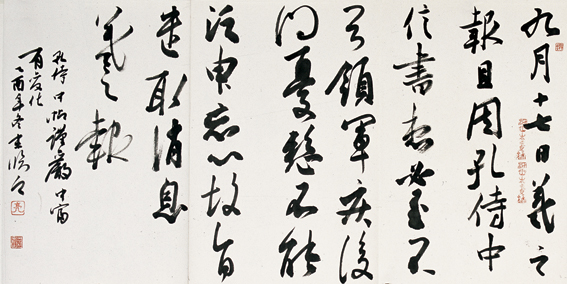 九月十七日羲之
報且因孔侍中
信書想必至不
知領軍疾後
問憂懸不能
須臾忘心故旨
遣取消息
羲之報
孔侍中帖謹嚴中寓
有变化
乙酉年冬